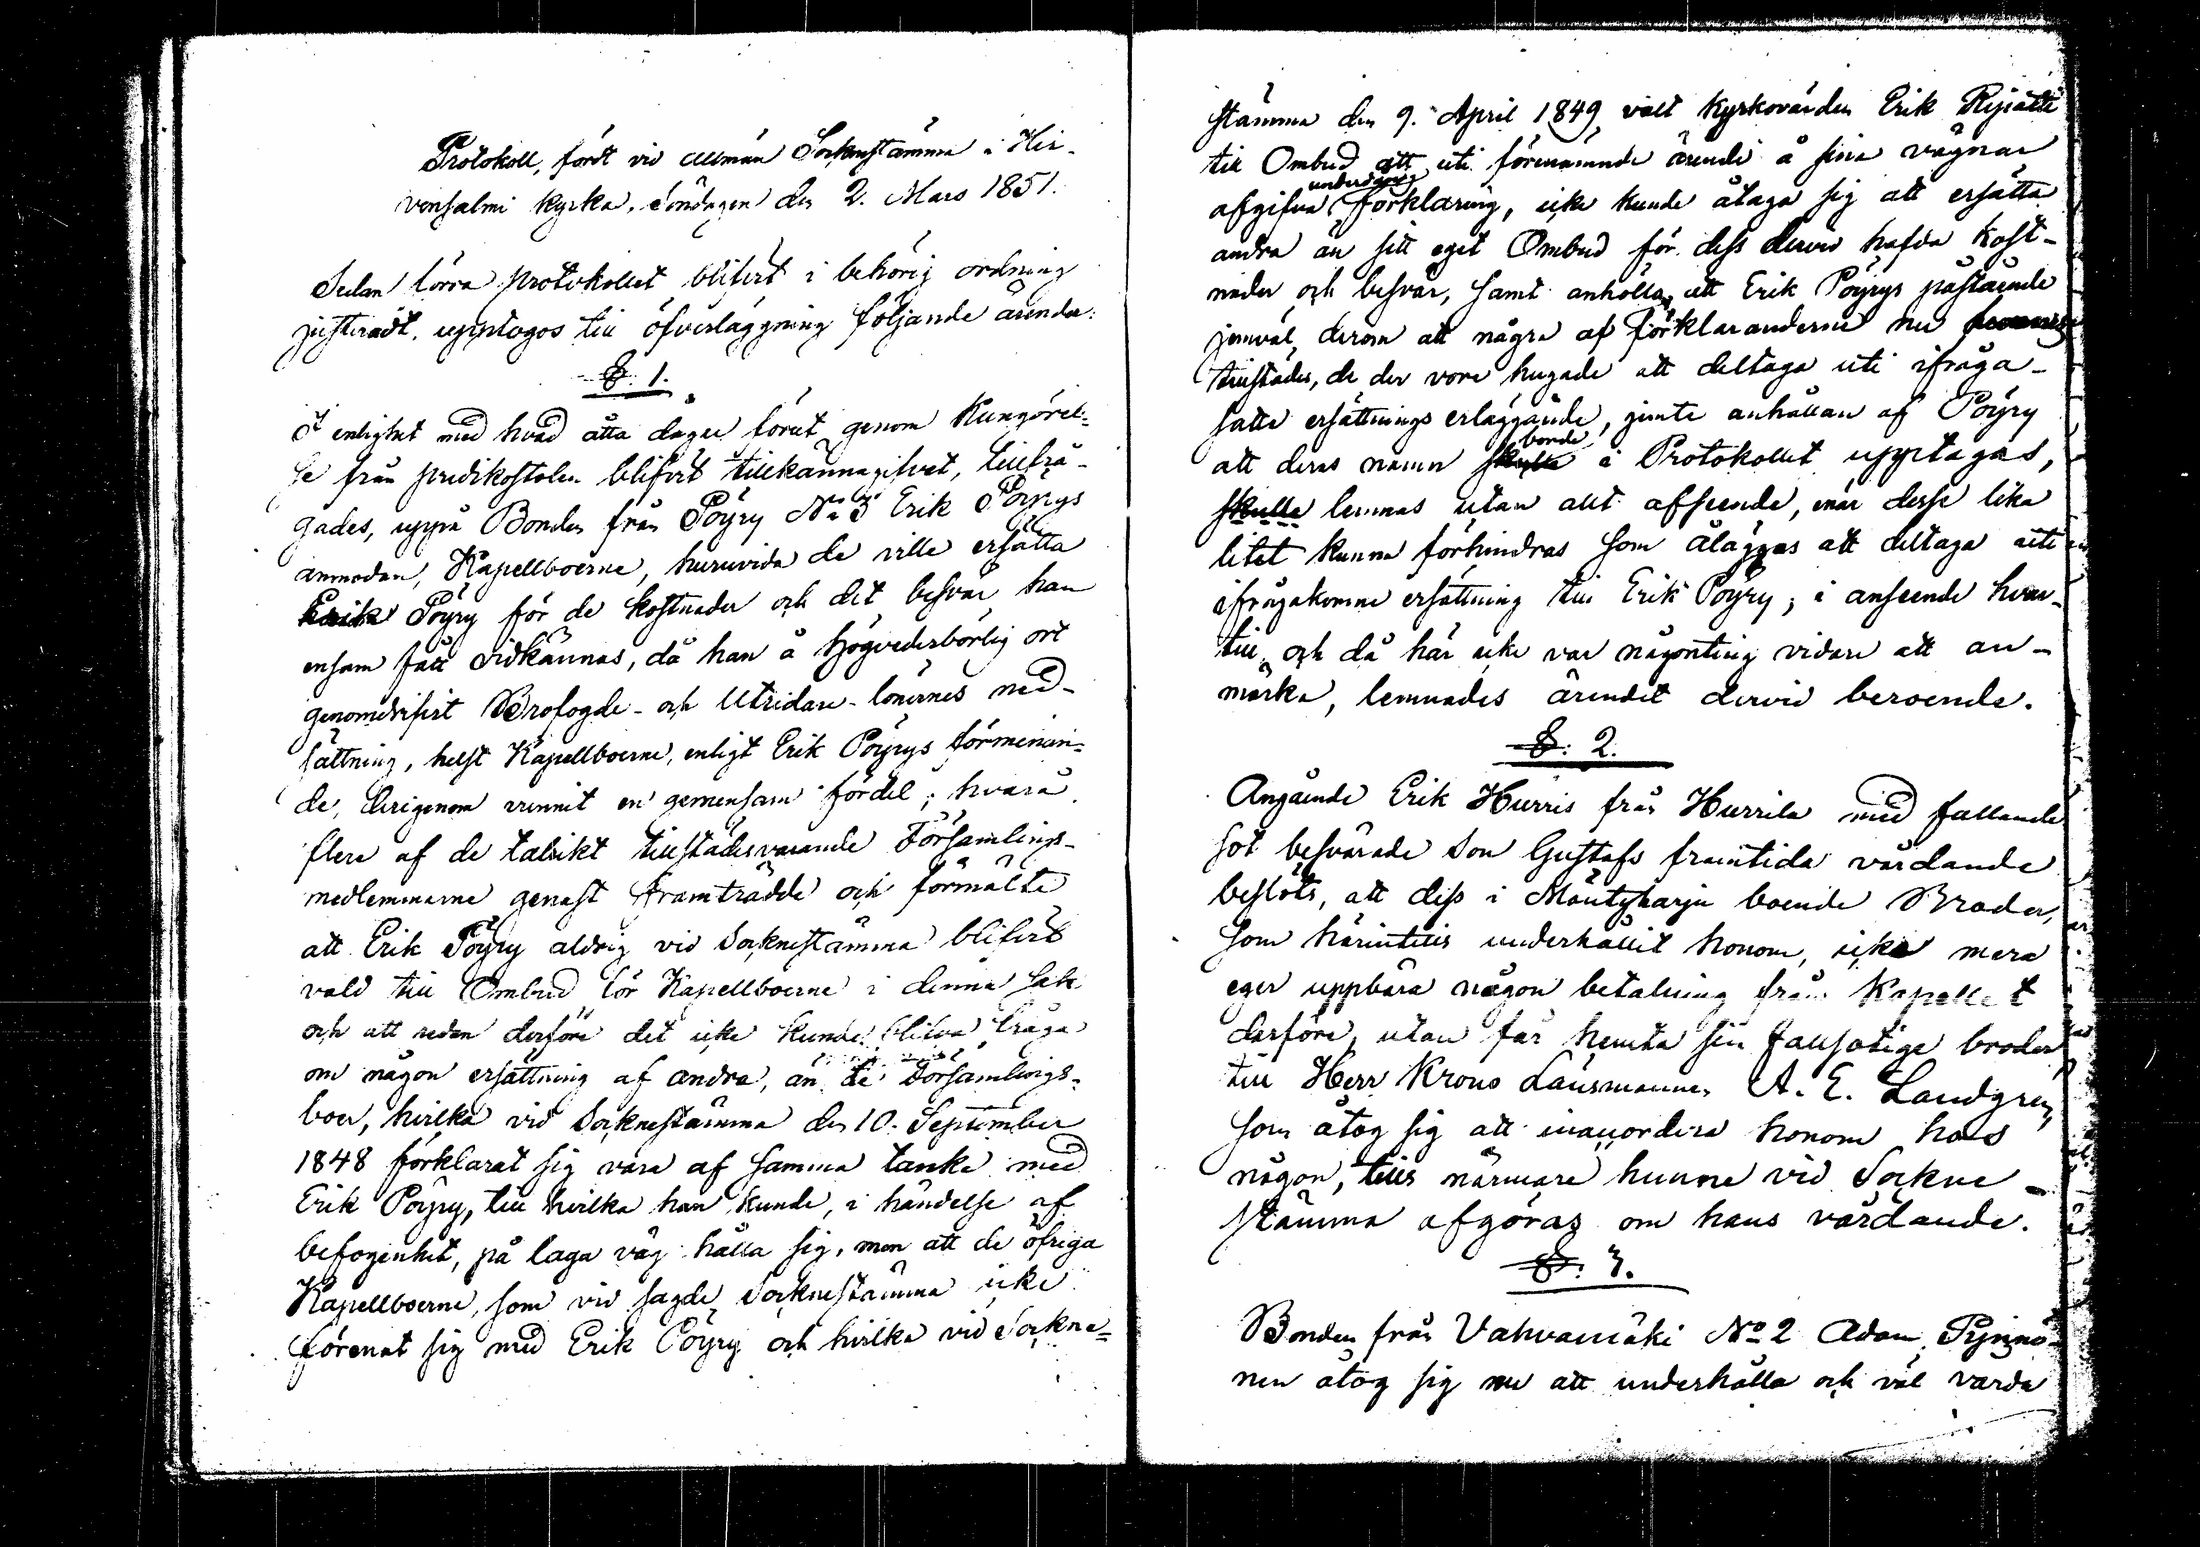 Protokoll, fördt vid allmän Sockenstämma i Hir-
vensalmi kyrka, Söndagen den 2. Mars 1851.
Sedan förra protokollet blifvit i behörig ordning
justeradt, upptogos till öfverläggning följande ärender:
§. 1.
I enlighet med hvad åtta dagar förut genom Kungörel-
se från predikostolen blifvit tillkännagifvet, tillfrå-
gades, uppå Bonden från Pöyry No 3 Erik Pöyrys
anmodan, Kapellboerne, huruvida de ville ersätta
Erik Pöyry för de kostnader och det besvär han
ensam fått vidkännas, då han å högvederbörlig ort
genomdrifvit Brofogde- och Utridare-lönernes ned-
sättning, helst Kapellboerne, enligt Erik Pöyrys förmenan-
de, derigenom vunnit en gemensam fördel; hvarå
flere af de talrikt tillstädesvarande Församlings-
medlemmarne genast framträdde och förmälte
att Erik Pöyry aldrig vid Socknestämma blifvit
vald till Ombud för Kapellboerne i denna sak
och att redan derföre det icke kunde blifva fråga
om någon ersättning af andra, än de Församlings-
boer, hvilka vid Socknestämma den 10. September
1848 förklarat sig vara af samma tanke med
Erik Pöyry, till hvilka han kunde, i händelse af
befogenhet, på laga väg hålla sig, men att de öfriga
Kapellboerne, som vid sagde Socknestämma icke
förenat sig med Erik Pöyry och hvilka vid Sockne-
stämma den 9. April 1849 valt kyrkovärden Erik
till Ombud att uti förenämnde ärende å sina vägnar
afgifva underdånig förklaring, icke kunde åtaga sig att ersätta
andra än sitt eget Ombud för dess dervid hafda kost-
nader och besvär, samt anhölla, att Erik Pöyrys påstående
jemväl derom att några af Förklaranderne nu
tillstädes, de der vore hugade att deltaga uti ifråga-
satte ersättnings erläggande, jemte anhållan af Pöyry
att deras namn borde i Protokollet upptagas,
skulle lemnas utan allt afseende, enär desse lika
litet kunna förhindras som åläggas att deltaga uti
ifrågakomne ersättning till Erik Pöyry; i anseende hvar-
till, och då här icke var någonting vidare att an-
märka, lemnades ärendet dervid beroende.
§. 2.
Angående Erik Hurris från Hurrila med fallande
sot besvärade Son Gustafs framtida vårdande
beslöts, att dess i Mäntyharju boende Broder,
som härintills underhållit honom, icke mera
eger uppbära någon betalning från Kapellet
derföre, utan får hemta sin fallsotige broder
till Herr Krono Länsmannen A. E. Landgren,
som åtog sig att inackordera honom hos
någon, tills närmare hunne vid Sockne-
stämma afgöras om hans vårdande.
§. 3.
Bonden från Vahvamäki No 2 Adam Pynnö-
nen åtog sig nu att underhålla och väl vårda